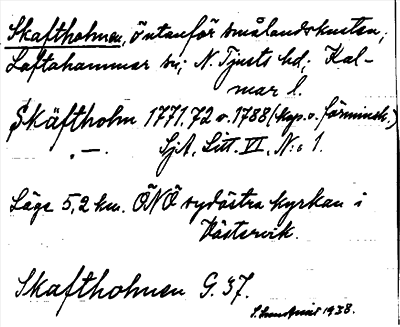 Skaftholmen, ö utanför smålandskusten,
Loftahammar sn; N. Tjusts hd; Kal-
mar l.
Skäftholm 1771.72 o. 1788 (kop. o. förminsk.)
„ — SjA, Litt. VI, N:o 1.
Läge 5,2 km. ÖNÖ sydöstra kyrkan i
Västervik.
Skaftholmen G. 37.
1938.